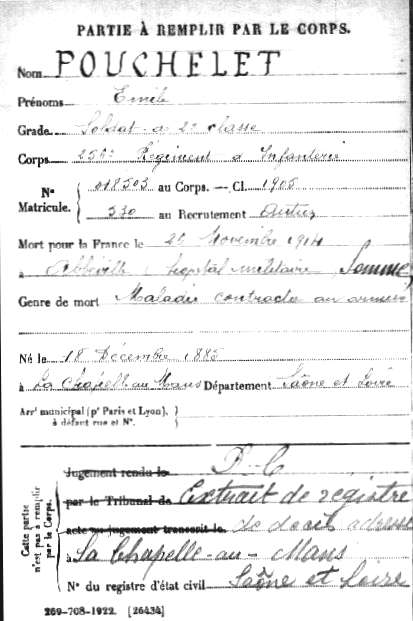 PARTIE À REMPLIR PAR LE CORPS.
Nom POUCHELET
Prénoms Emile
Grade Soldat de 2e classe
Corps 256e Régiment d'Infanterie
N° Matricule. { 018503 au Corps. — Cl. 1905
{ 330 au Recrutement Autun
Mort pour la France le Novembre 1914
à Abbeville hopital militaire Somme
Genre de mort Maladie contractée au armées
Né le 18 Décembre 1885
à La Chapelle au Mans Département Saône et Loire
Arr' municipal (p' Paris et Lyon),
à défaut rue et N°.
Cette partie n'est pas à remplir par le Corps.
Jugement rendu le
par le Tribunal de Extrait de registre
acte ou jugement transcrit le de décès adressé
à La Chapelle-au-Mans
N° du registre d'état civil Saône et Loire
269-708-1922. [26434]